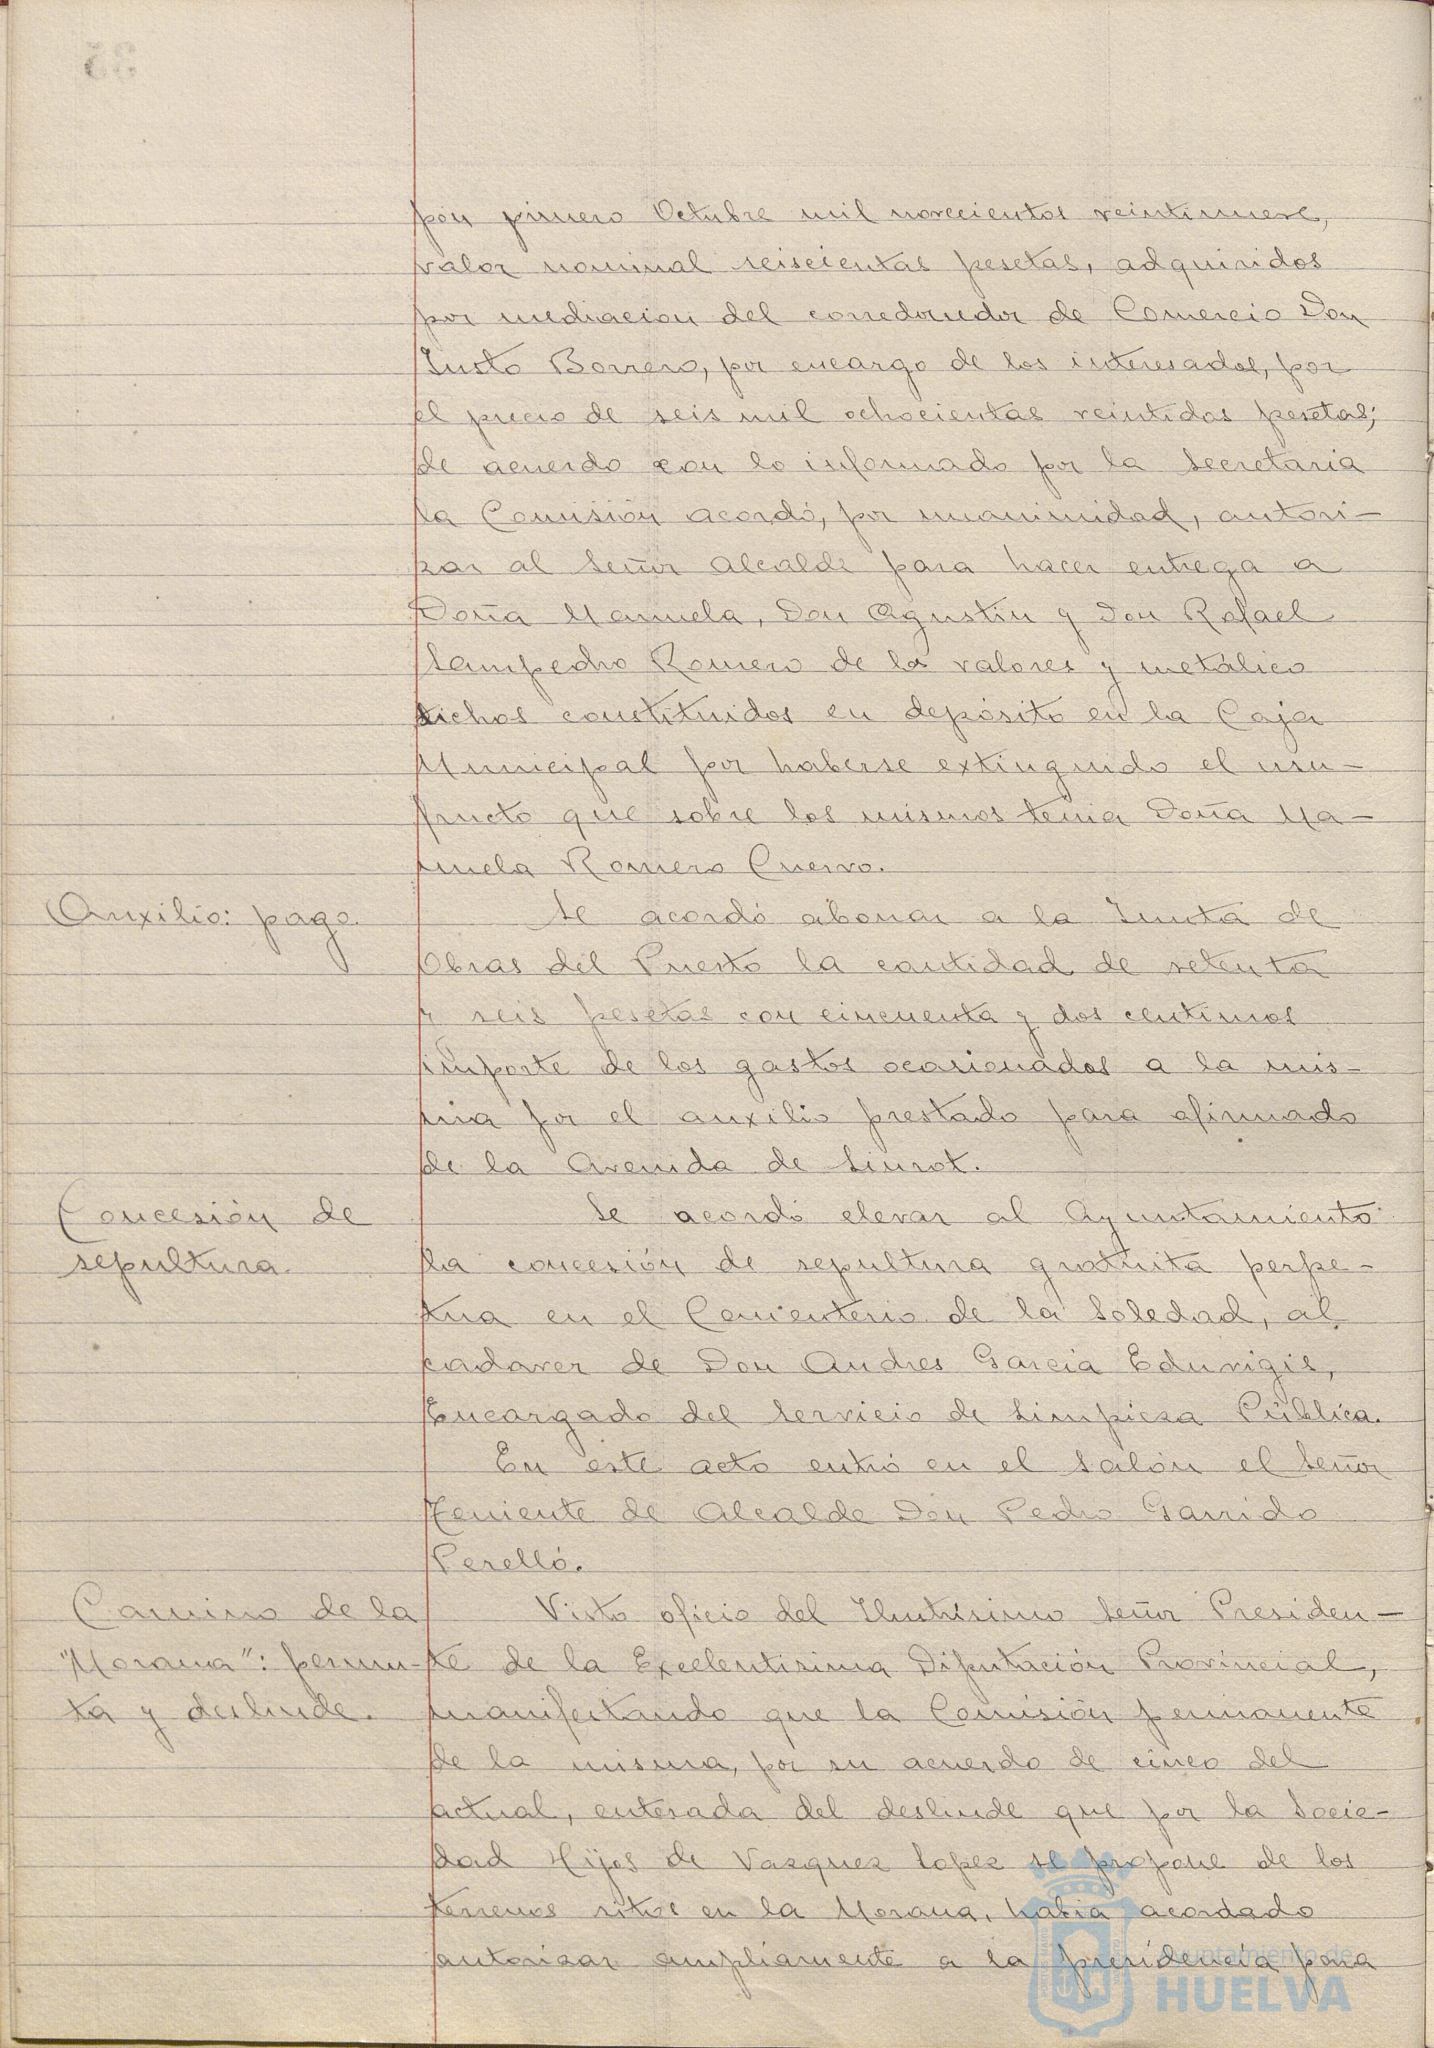 pón primero Octubre mil novecientos veintinueve,
valor nominal seiscientas pesetas, adquiridos
por mediacion del corredoredor de Comercio Don
Justo Borrero, por encargo de los interesados, por
el precio de seis mil ochocientas veintidos pesetas;
de acuerdo con lo informado por la Secretaria
la Comisión acordó, por unanimidad, autori-
zar al Señor Alcalde para hacer entrega a
Doña Manuela, Don Agustin y Don Rafael
Sampedro Romero de los valores y metálico
dichos constituidos en depósito en la Caja
Municipal por haberse extinguido el usu-
fructo que sobre los mismos tenia Doña Ma-
nuela Romero Cuervo.
Auxilio: pago.
Se acordó abonar a la Junta de
Obras del Puerto la cantidad de setenta
y seis pesetas con cincuenta y dos centimos
importe de los gastos ocasionados a la mis-
ma por el auxilio prestado para afirmado
de la Avenida de Siurot.
Concesión de
sepultura.
Se acordó elevar al Ayuntamiento
la concesión de sepultura gratuita perpe-
tua en el Cementerio de la Soledad, al
cadaver de Don Andres Garcia Eduvigis,
Encargado del Servicio de Limpieza Pública.
En este acto entró en el Salón el Señor
Teniente de Alcalde Don Pedro Garrido
Perelló.
Camino de la
"Morana": permu-
ta y deslinde.
Visto oficio del Ilustrísimo Señor Presiden-
te de la Excelentisima Diputación Provincial,
manifestando que la Comisión permanente
de la misma, por su acuerdo de cinco del
actual, enterada del deslinde que por la Socie-
dad Hijos de Vazquez Lopez se propone de los
terrenos sitos en la Morana, habia acordado
autorizar ampliamente a la presidencia para
Ayuntamiento de
HUELVA